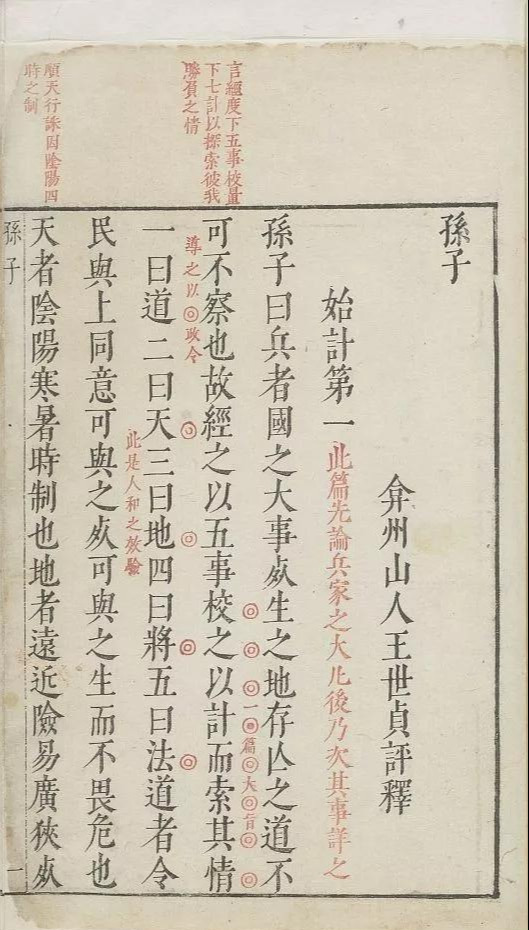 孫子
弇州山人王世貞評釋
始計第一 此篇先論兵家之大凢後乃次其事詳之
言經度下五事校量
下七計以探索彼我
勝負之情
孫子曰兵者國之大事死生之地存亾之道不
一篇大旨
可不察也故經之以五事校之以計而索其情
導之以政令
一曰道二曰天三曰地四曰將五曰法道者令
此是人和之效驗
民與上同意可與之死可與之生而不畏危也
順天行誅因陰陽四
時之制
天者陰陽寒暑時制也地者遠近險易廣狹死
孫子
一